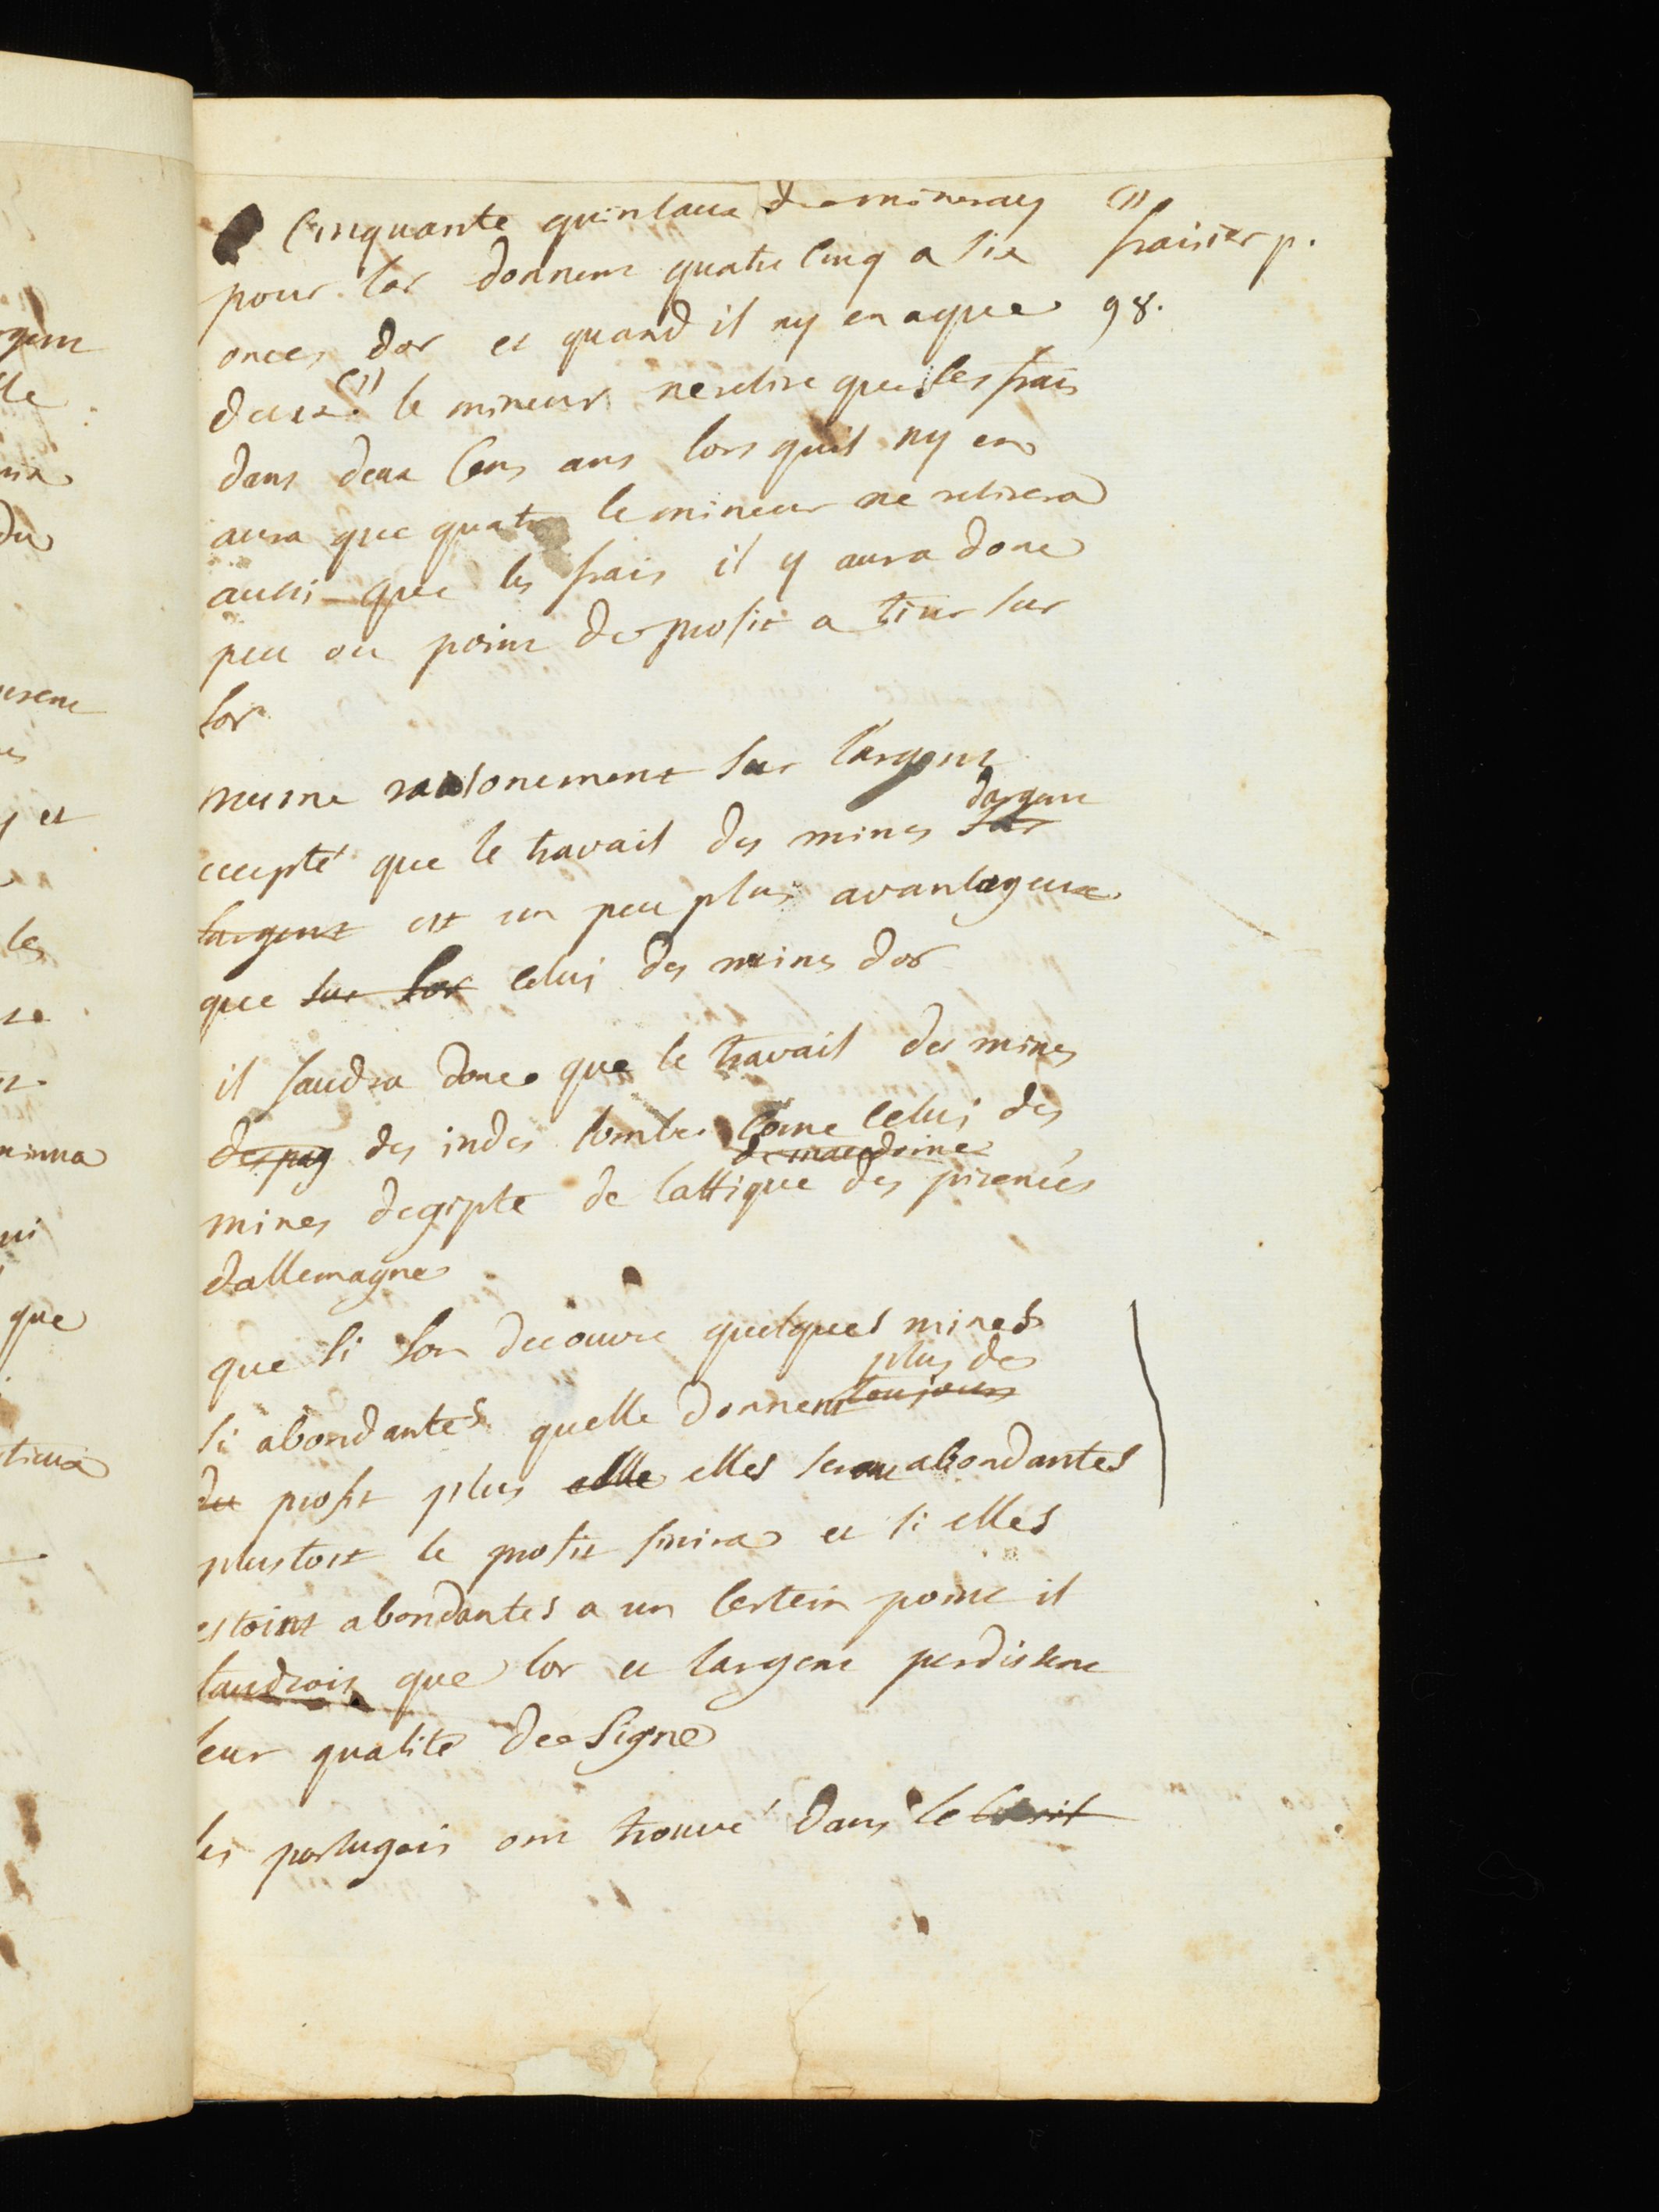 Cinquante quintaux de mineray
pour lor donnent quatre cinq a six
onces dor et quand il ny en a que
deux (1) le mineur ne retire que ses frais
dans deux cens ans lors quil ny en
aura que quatre le mineur ne retirera
aussi que les frais il y aura donc
peu ou point de profit a tirer sur
lor
(1)
fraisier p.
98.
mesme raisonement sur largent
excepté que le travail des mines sur
dargent
largent est un peu plus avantageux
que sur lor celui des mines dor
il faudra donc que le travail des mines
des indes tombe come celui des
mines degipte de lattique des pirenées
dallemagne
que si lon decouvre quelques mines
plus de
si abondantes quelle donnent toujours
du profit plus elle elles seront abondantes
plustost le profit finira et si elles
estoint abondantes a un certein point il
faudroit que lor et largent perdissent
leur qualité de signe
les portugais ont trouvé dans le